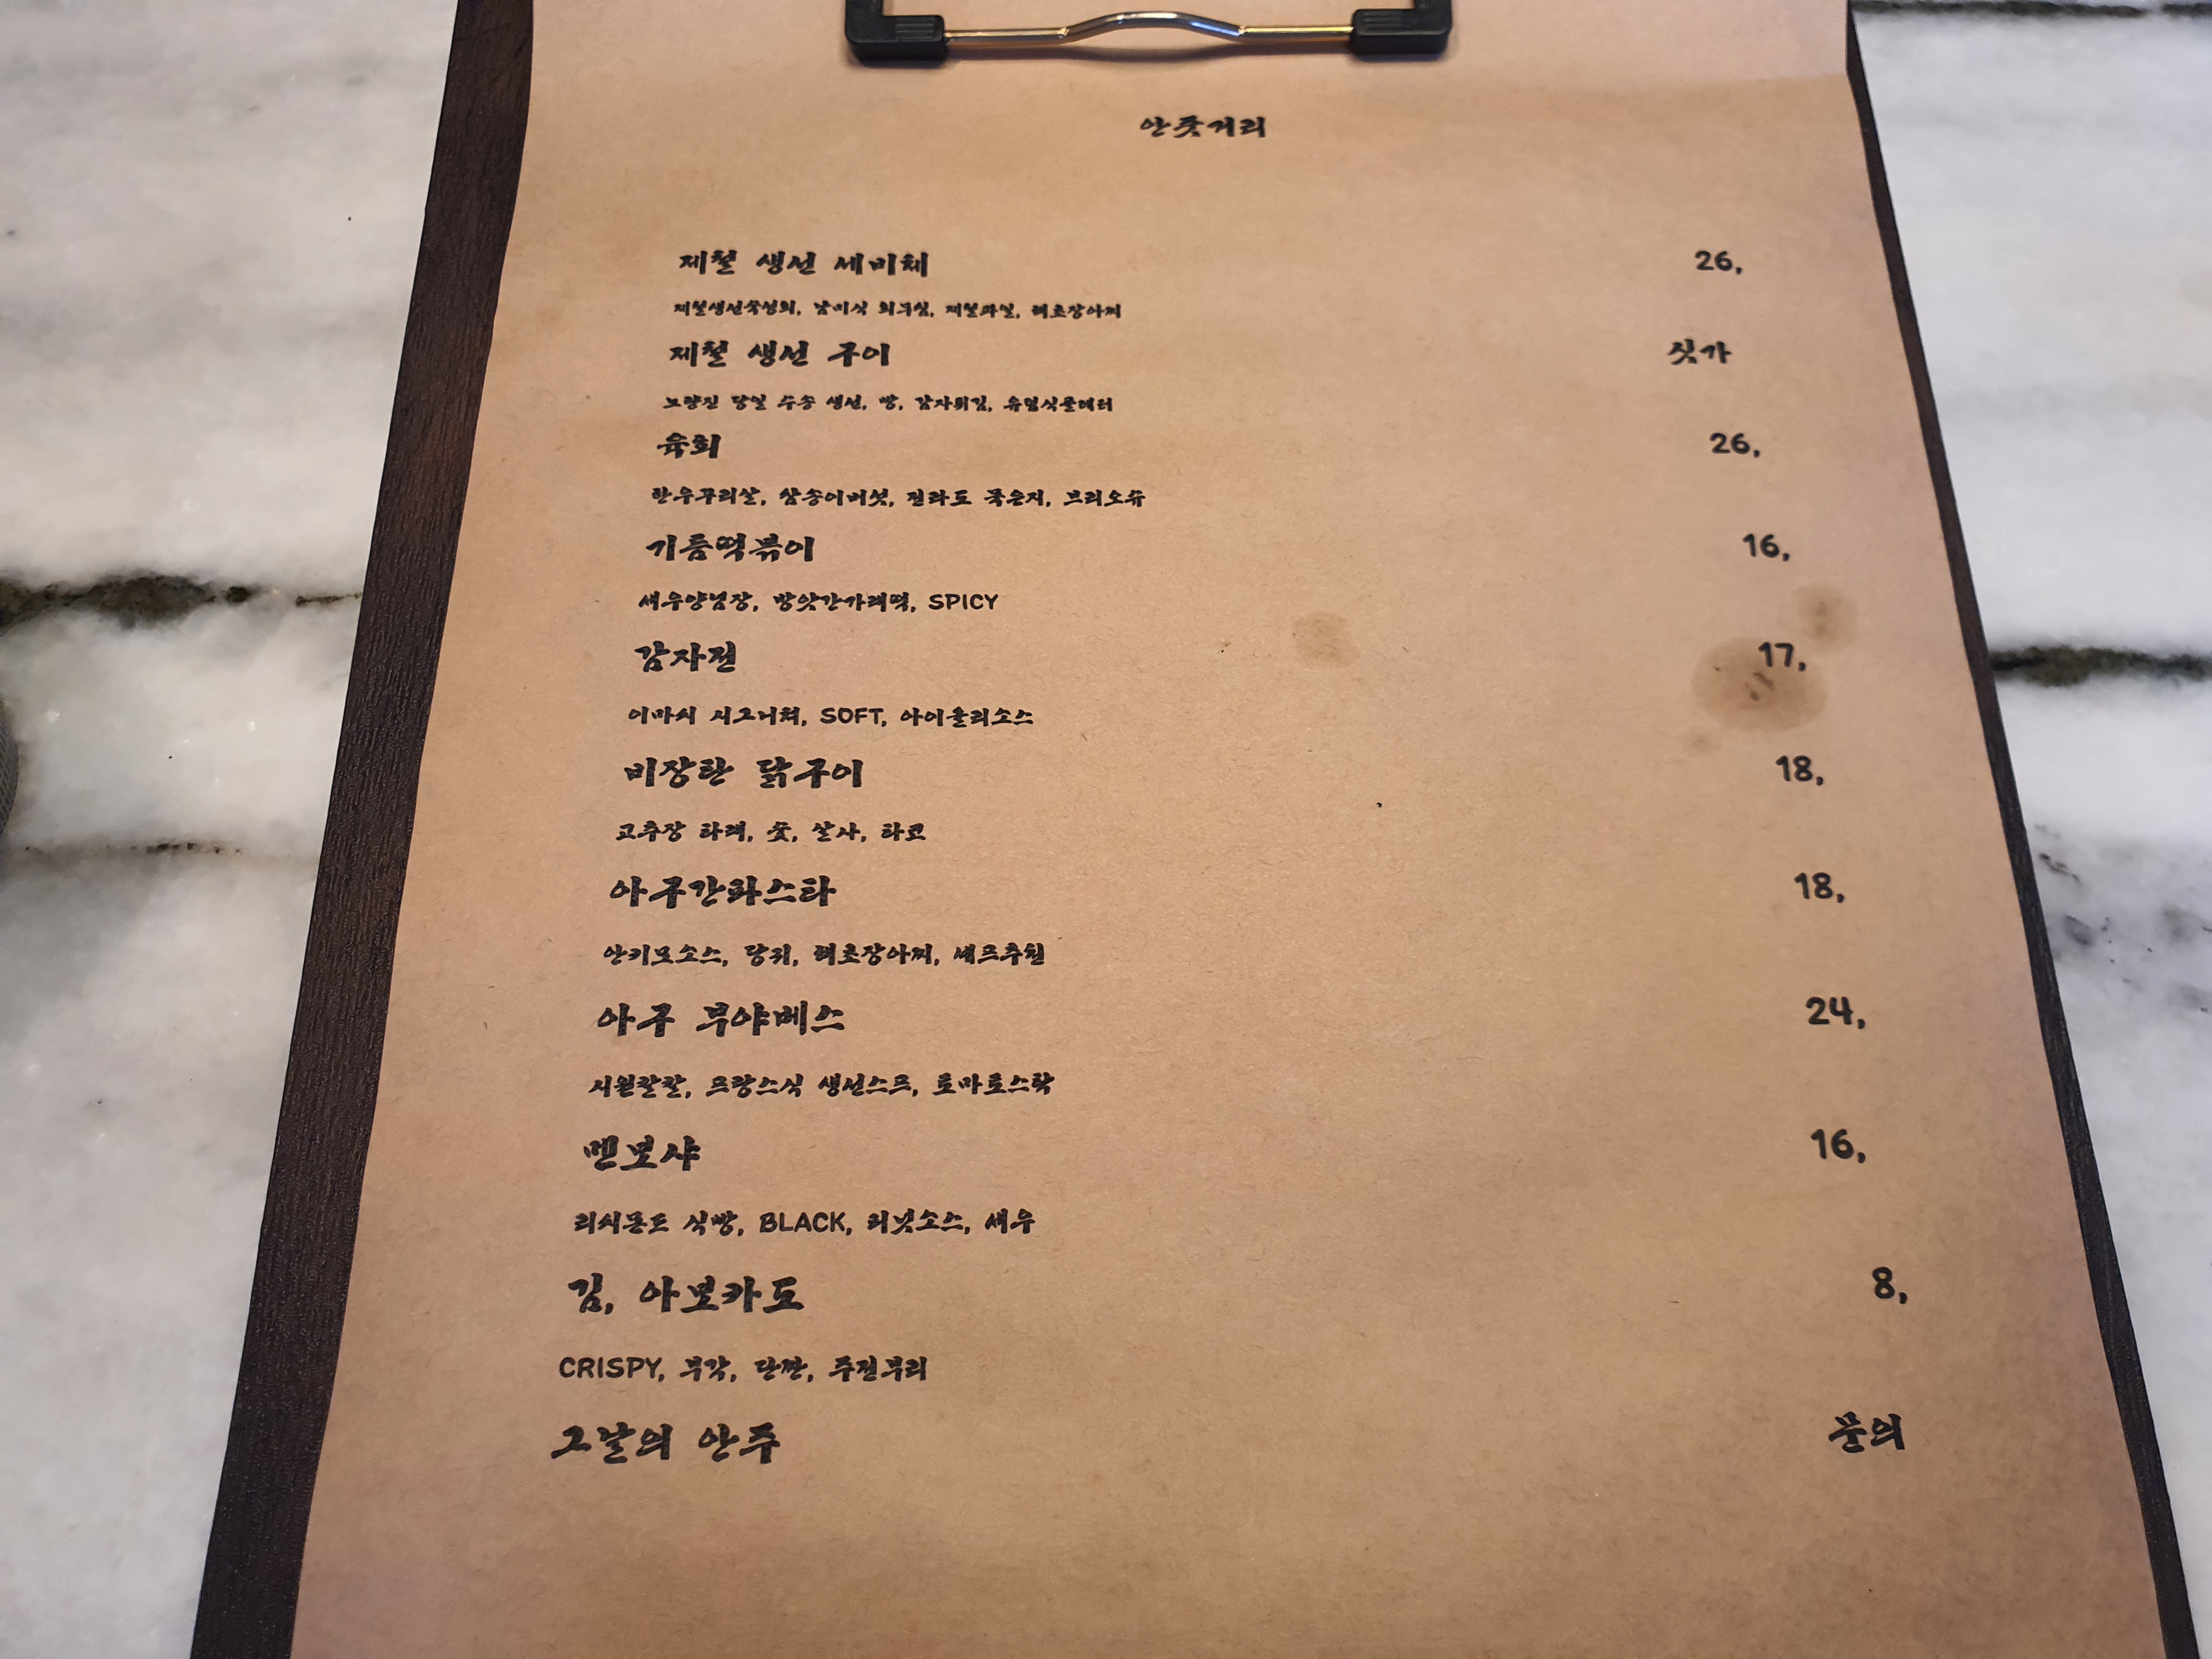 안줏거리
제철 생선 세비체 26,
제철생선숙성회, 남미식 회무침, 제철과일, 해초장아찌
제철 생선 구이 싯가
노량진 당일 수송 생선, 빵, 감자튀김, 유럽식물데리
육회 26,
한우꾸리살, 참송이버섯, 전라도 묵은지, 브리오슈
기름떡볶이 16,
새우양념장, 방앗간가래떡, SPICY
감자전 17,
이마시 시그니쳐, SOFT, 아이올리소스
비장탄 닭구이 18,
고추장 타레, 숯, 살사, 타코
아구간파스타 18,
안키모소스, 당귀, 해초장아찌, 셰프추천
아구 부야베스 24,
시원칼칼, 프랑스식 생선스프, 토마토스탁
멘보샤 16,
리치몬드 식빵, BLACK, 피넛소스, 새우
김, 아보카도 8,
CRISPY, 부각, 단짠, 주전부리
그날의 안주 문의